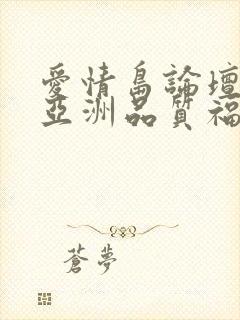 愛情島論壇
亞洲品質福
蒼夢